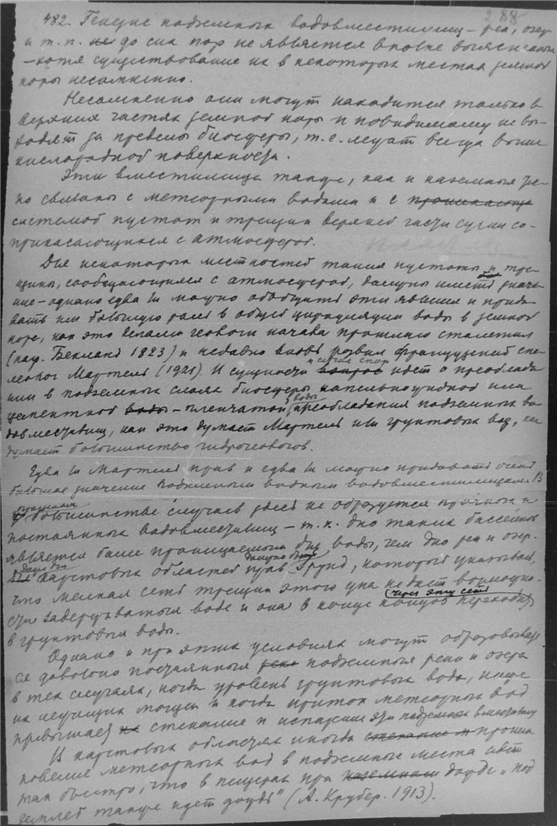 288
482. Генезис подземных водовместилищ – рек, озер
и т.п. до сих пор не является вполне выясненным
– хотя существование их в некоторых местах земной
коры несомненно.
Несомненно они могут находится только в
верхних частях земной коры и повидимому не вы-
ходят за пределы биосферы, т.е. лежат всегда выше
кислородной поверхности.
Эти вместилища также, как и наземные
связаны с метеорными водами и с
системой пустот и трещин верхней части суши со-
прикасающихся с атмосферой.
Для некоторых местностей такие пустоты и тре-
щины, сообщающиеся с атмосферой, должны иметь значе-
ние – однако едва ли можно обобщать эти явления и прида-
вать им большую роль в общей циркуляции воды в земной
коре, как это делали геологи начала прошлого столетия
(1823) и недавно вновь развил французский спе-
леолог Мартель (1921). В сущности спор идет о преоблада-
нии в подземных слоях биосферы капельножидкой или
цементной – пленчатой воды, преобладания подземных во-
довместилищ, как это думает Мартель или грунтовых вод, как
думает большинство гидрогеологов.
Едва ли Мартель прав и едва ли можно придавать очень
большое значение подземным водным водовместилищам. В
большинстве случаев здесь не образуется прочных и
постоянных водовместилищ – т.к. дно таких бассейнов
является более проницаемым для воды, чем дно рек и озер.
Даже для карстовых областей прав Грунд, который указывал,
что мелкая сеть трещин этого дна не даст возможно-
сти задерживаться воде и она через эту сеть в конце концов переходит
в грунтовые воды.
Однако и при этих условиях могут образовывать-
ся довольно постоянные подземные реки и озера
в тех случаях, когда уровень грунтовых вод, ниже
их лежащих мощен и когда приток метеорных вод
превышает стекание и испарение
В карстовых областях иногда проник-
новение метеорных вод в подземные места идет
так быстро, что в пещерах при дожде „под
землей также идет дождь“ (А. Крубер. 1913).